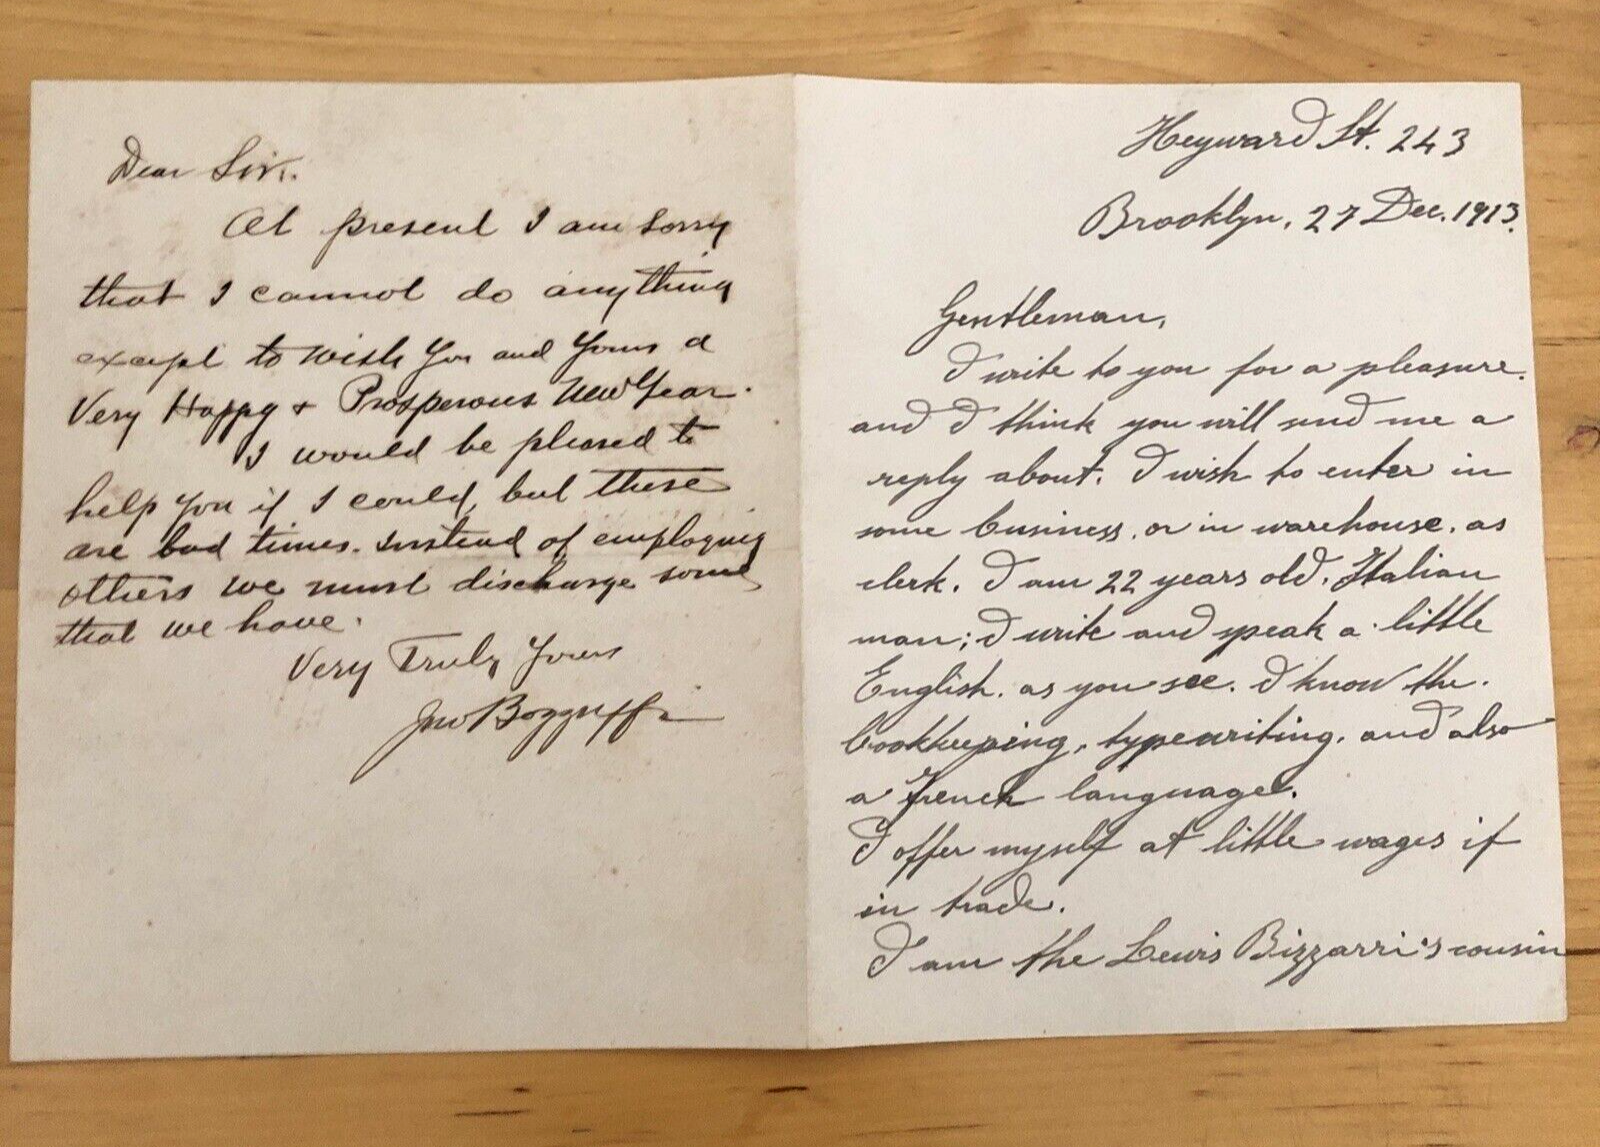 Dear Sir.
At present I am sorry
that I cannot do anything
except to wish you and yours a
Very Happy + Prosperous New Year.
I would be pleased to
help you if I could, but these
are bad times. Instead of employing
others we must discharge some
that we have.
Very Truly Yours
Jno Bozzuffi
Heyward St. 243
Brooklyn, 27 Dec. 1913.
Gentleman,
I write to you for a pleasure.
and I think you will send me a
reply about. I wish to enter in
some business, or in warehouse, as
clerk. I am 22 years old, Italian
man; I write and speak a little
English, as you see. I know the
bookkeeping, typewriting, and also
a French language.
I offer myself at little wages if
in trade.
I am the Lewis Bizzarri's cousin